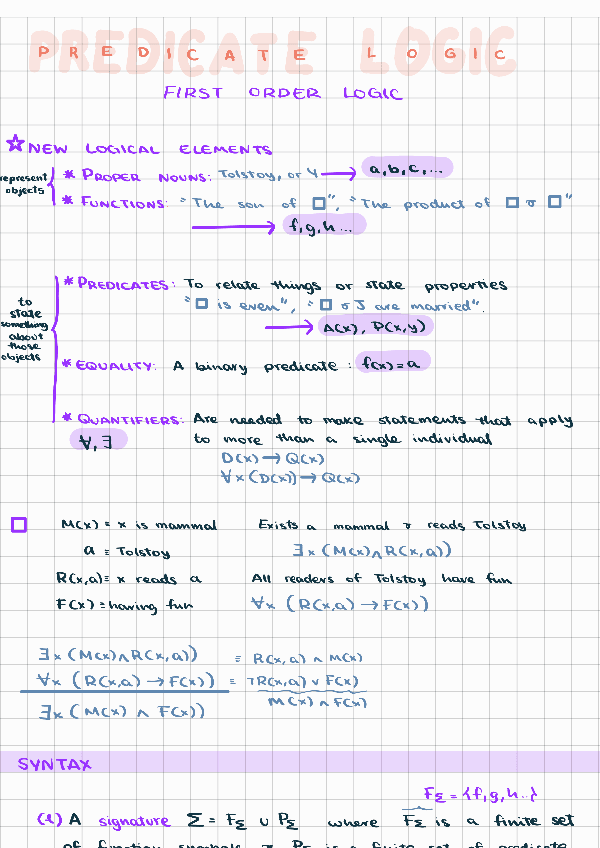 PREDICATE LOGIC
FIRST ORDER LOGIC
☆ NEW LOGICAL ELEMENTS
represent objects
* PROPER NOUNS: Tolstoy, or 4 → a, b, c, ...
* FUNCTIONS: "The son of □", "The product of □ & □"
→ f, g, h ...
to state something about those objects
* PREDICATES: To relate things or state properties
"□ is even", "□ & J are married".
→ A(x), P(x,y)
* EQUALITY: A binary predicate: f(x) = a
* QUANTIFIERS: Are needed to make statements that apply
∀, ∃ to more than a single individual
D(x) → Q(x)
∀x (D(x)) → Q(x)
□ M(x) ≡ x is mammal Exists a mammal & reads Tolstoy
a ≡ Tolstoy ∃x (M(x) ∧ R(x,a))
R(x,a) ≡ x reads a All readers of Tolstoy have fun
F(x) ≡ having fun ∀x (R(x,a) → F(x))
∃x (M(x) ∧ R(x,a)) ≡ R(x,a) ∧ M(x)
∀x (R(x,a) → F(x)) ≡ ¬R(x,a) ∨ F(x)
∃x (M(x) ∧ F(x)) M(x) ∧ F(x)
SYNTAX
F_Σ = {f, g, h ...}
(1) A signature Σ = F_Σ ∪ P_Σ where F_Σ is a finite set
of function symbols & P_Σ is a finite set of predicate